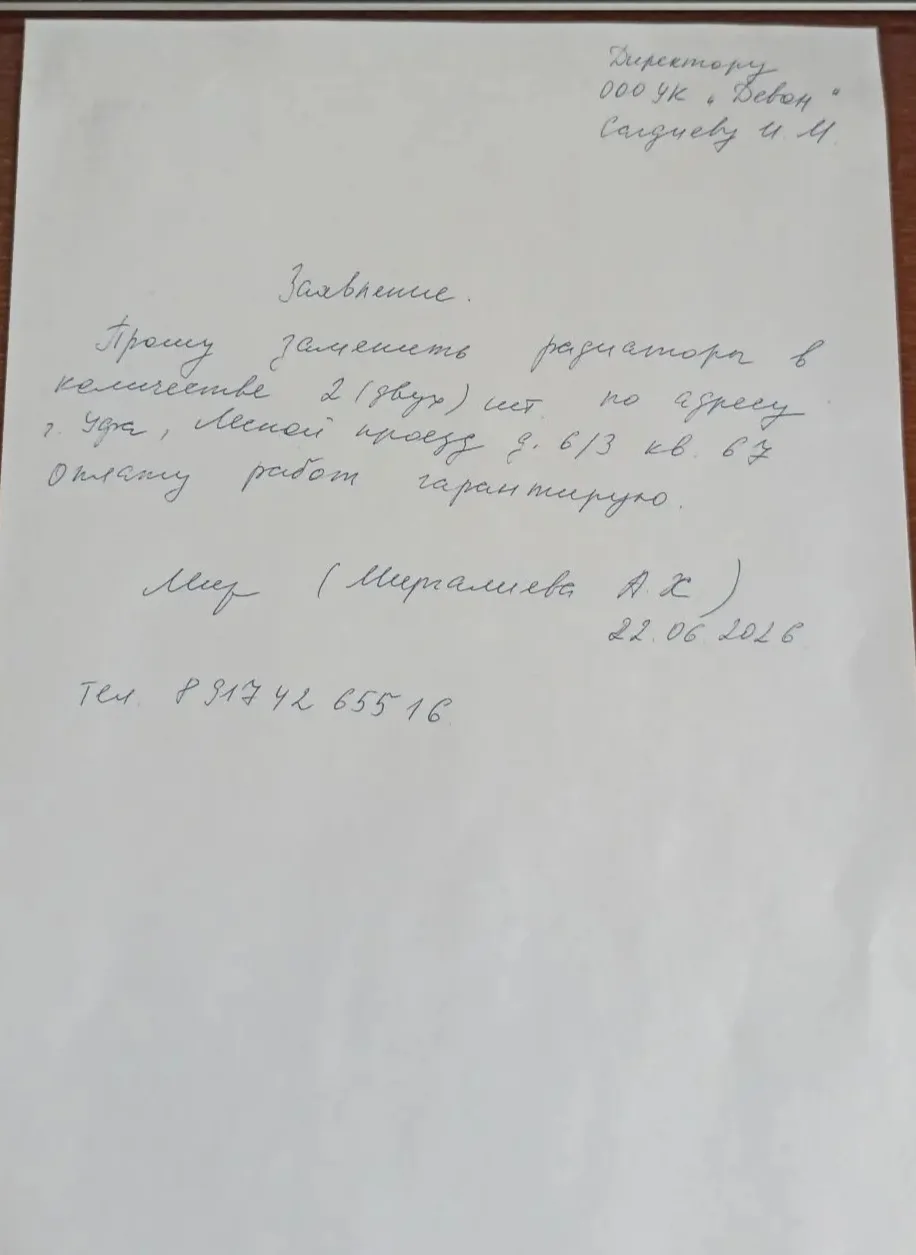 Директору
ООО УК "Девон"
Сагдиеву И. М.
Заявление.
Прошу заменить радиаторы в
количестве 2 (двух) шт. по адресу
г. Уфа, Лесной проезд д. 6/3 кв. 67
Оплату работ гарантирую.
Мир (Миргалиева А. Х)
22.06.2026
тел. 8 917 42 655 16